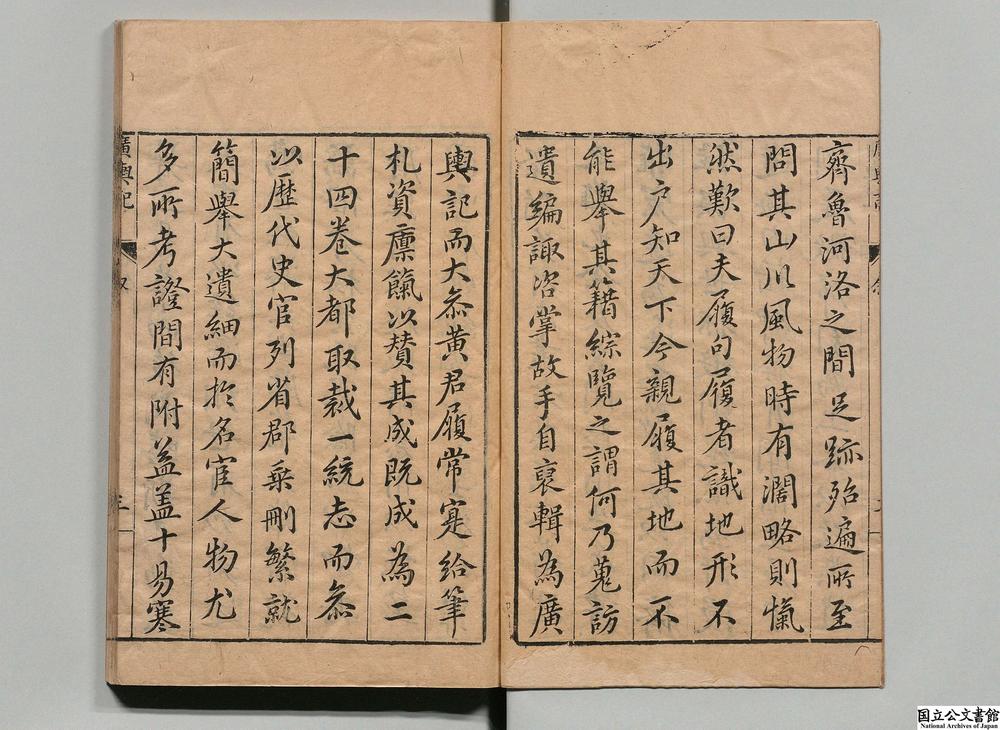 齊魯河洛之間足跡殆遍所至
問其山川風物時有濶略則愾
然歎曰夫履句屨者識地形不
出户知天下今親履其地而不
能舉其籍綜覽之謂何乃蒐訪
遺編諏咨掌故手自裒輯為廣
輿記而大叅黄君履常寔給筆
札資廩餼以賛其成既成為二
十四卷大都取裁一統志而叅
以歷代史官列省郡乗刪繁就
簡舉大遺細而於名宦人物尤
多所考證間有附益盖十易寒
廣輿記
叙
国立公文書館
National Archives of Japan